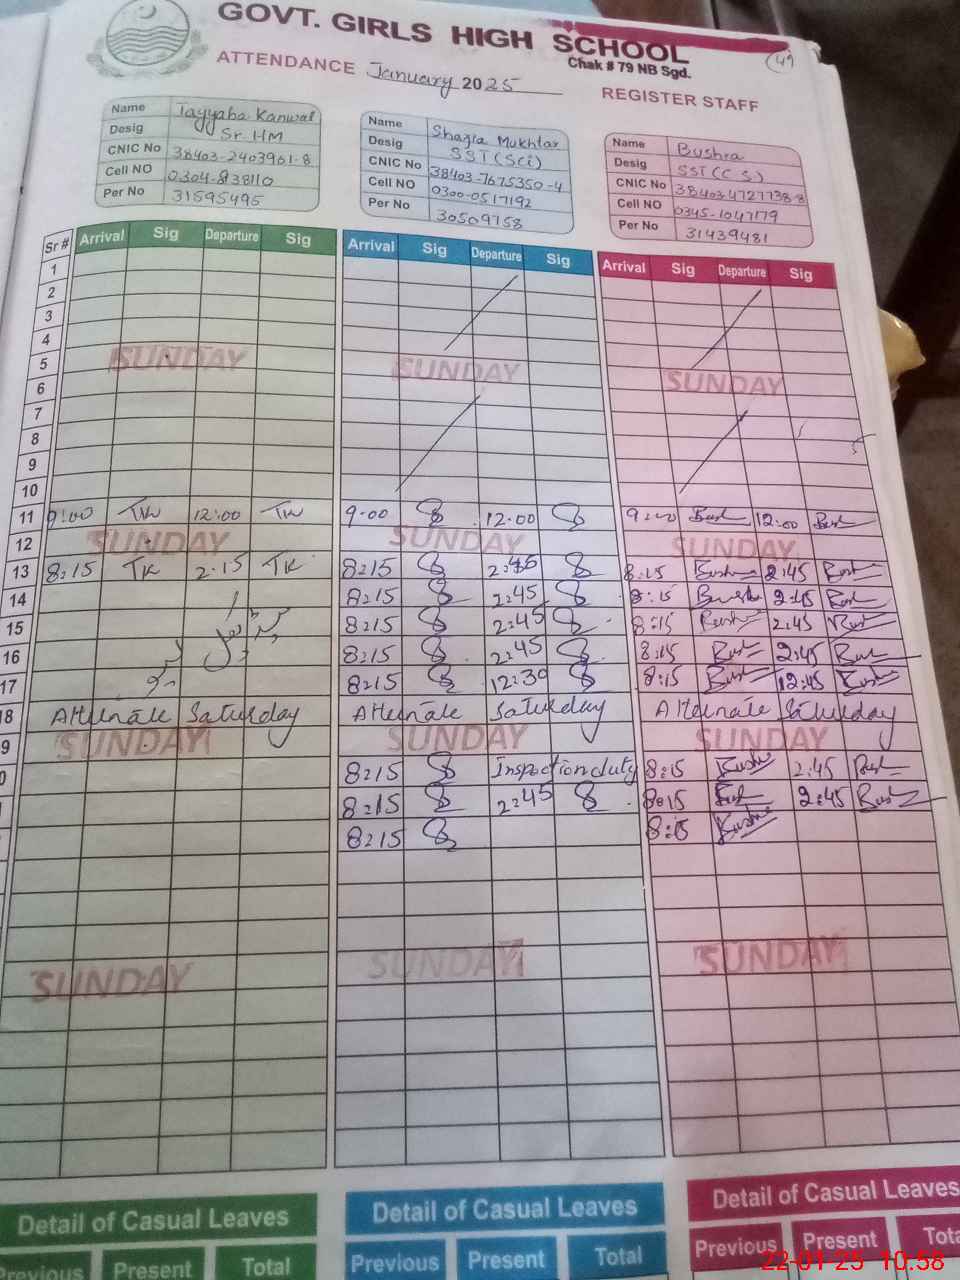 GOVT. GIRLS HIGH SCHOOL
Chak # 79 NB Sgd.
49
ATTENDANCE January 2025
REGISTER STAFF
Name Tayyaba Kanwal
Desig Sr. HM
CNIC No 38403-2403961-8
Cell NO 0304-8138110
Per No 31595495
Name Shazia Mukhtar
Desig SST (Sci)
CNIC No 38403-7675350-4
Cell NO 0300-0517192
Per No 30509758
Name Bushra
Desig SST (C S)
CNIC No 384034727738-8
Cell NO 0345-1047179
Per No 31439481
Sr # Arrival Sig Departure Sig Arrival Sig Departure Sig Arrival Sig Departure Sig
1
2
3
4
5 SUNDAY SUNDAY SUNDAY
6
7
8
9
10
11 9:00 TK 12:00 TK 9:00 12:00 9:00 Bush 12:00 Bush
12 SUNDAY SUNDAY SUNDAY
13 8:15 TK 2:15 TK 8:15 2:45 8:15 Bush 2:45 Bush
14 8:15 2:45 8:15 Bush 2:45 Bush
15 8:15 2:45 8:15 Bush 2:45 Bush
16 8:15 2:45 8:15 Bush 2:45 Bush
17 8:15 12:30 8:15 Bush 12:45 Bush
18 Alternate Saturday Alternate Saturday Alternate Saturday
9 SUNDAY SUNDAY SUNDAY
0 8:15 Inspection duty 8:15 Bush 2:45 Bush
8:15 2:45 8:15 Bush 2:45 Bush
8:15 8:15 Bush
SUNDAY SUNDAY SUNDAY
Detail of Casual Leaves Detail of Casual Leaves Detail of Casual Leaves
Previous Present Total Previous Present Total Previous Present Tota
22-01-25 10:58